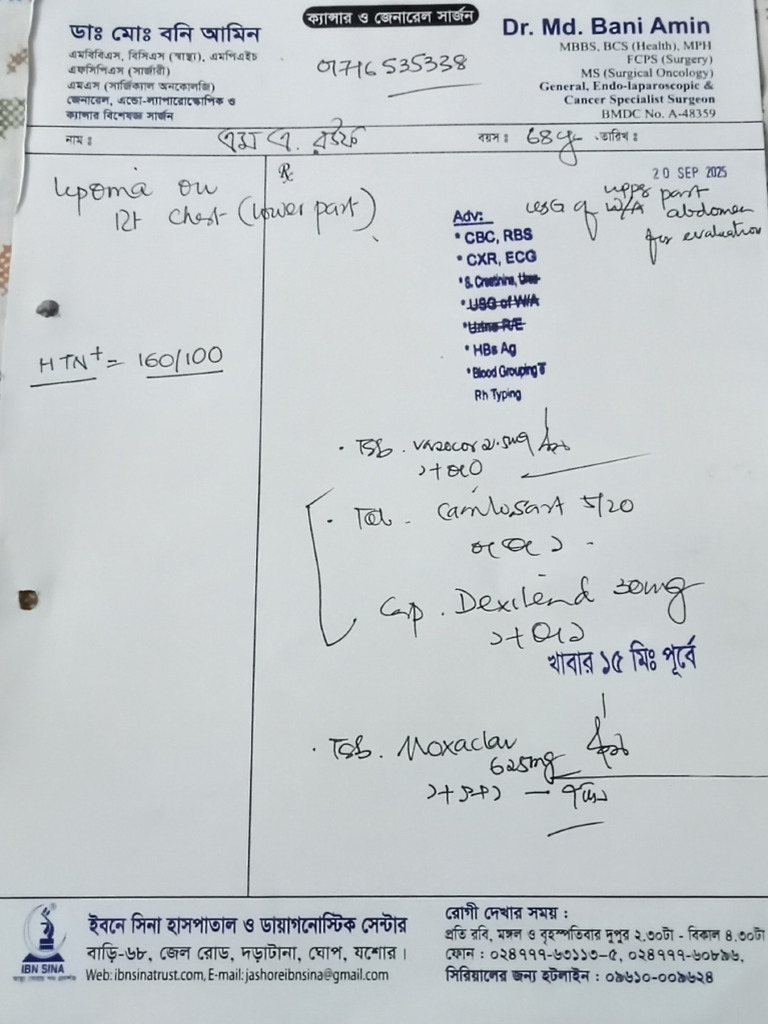 ক্যান্সার ও জেনারেল সার্জন
ডাঃ মোঃ বনি আমিন
এমবিবিএস, বিসিএস (স্বাস্থ্য), এমপিএইচ
এফসিপিএস (সার্জারী)
এমএস (সার্জিক্যাল অনকোলজি)
জেনারেল, এন্ডো-ল্যাপারোস্কোপিক ও
ক্যান্সার বিশেষজ্ঞ সার্জন
01716535338
Dr. Md. Bani Amin
MBBS, BCS (Health), MPH
FCPS (Surgery)
MS (Surgical Oncology)
General, Endo-laparoscopic &
Cancer Specialist Surgeon
BMDC No. A-48359
নাম : এম এ. রউফ বয়স : 68y তারিখ :
20 SEP 2025
Lipoma on
Rt chest (lower part)
HTN+ = 160/100
Rx
USG of W/A upper part abdomen
for evaluation
Adv:
• CBC, RBS
• CXR, ECG
• S. Creatinine, Urea
• USG of W/A
• Urine R/E
• HBs Ag
• Blood Grouping
Rh Typing
Tab. 2.5mg
১+০+০
Tab. Camlosart 5/20
০+০+১
Cap. Dexilend 30mg
১+০+১
খাবার ১৫ মিঃ পূর্বে
Tab. Moxaclav
625mg
১+১+১ —
ইবনে সিনা হাসপাতাল ও ডায়াগনোস্টিক সেন্টার
বাড়ি-৬৮, জেল রোড, দড়াটানা, ঘোপ, যশোর।
Web: ibnsinatrust.com, E-mail: jashoreibnsina@gmail.com
IBN SINA
রোগী দেখার সময় :
প্রতি রবি, মঙ্গল ও বৃহস্পতিবার দুপুর ২.৩০টা - বিকাল ৪.৩০টা
ফোন : ০২৪৭৭৭-৬৩১১৩-৫, ০২৪৭৭৭-৬০৮৯৬,
সিরিয়ালের জন্য হটলাইন : ০৯৬১০-০০৯৬২৪